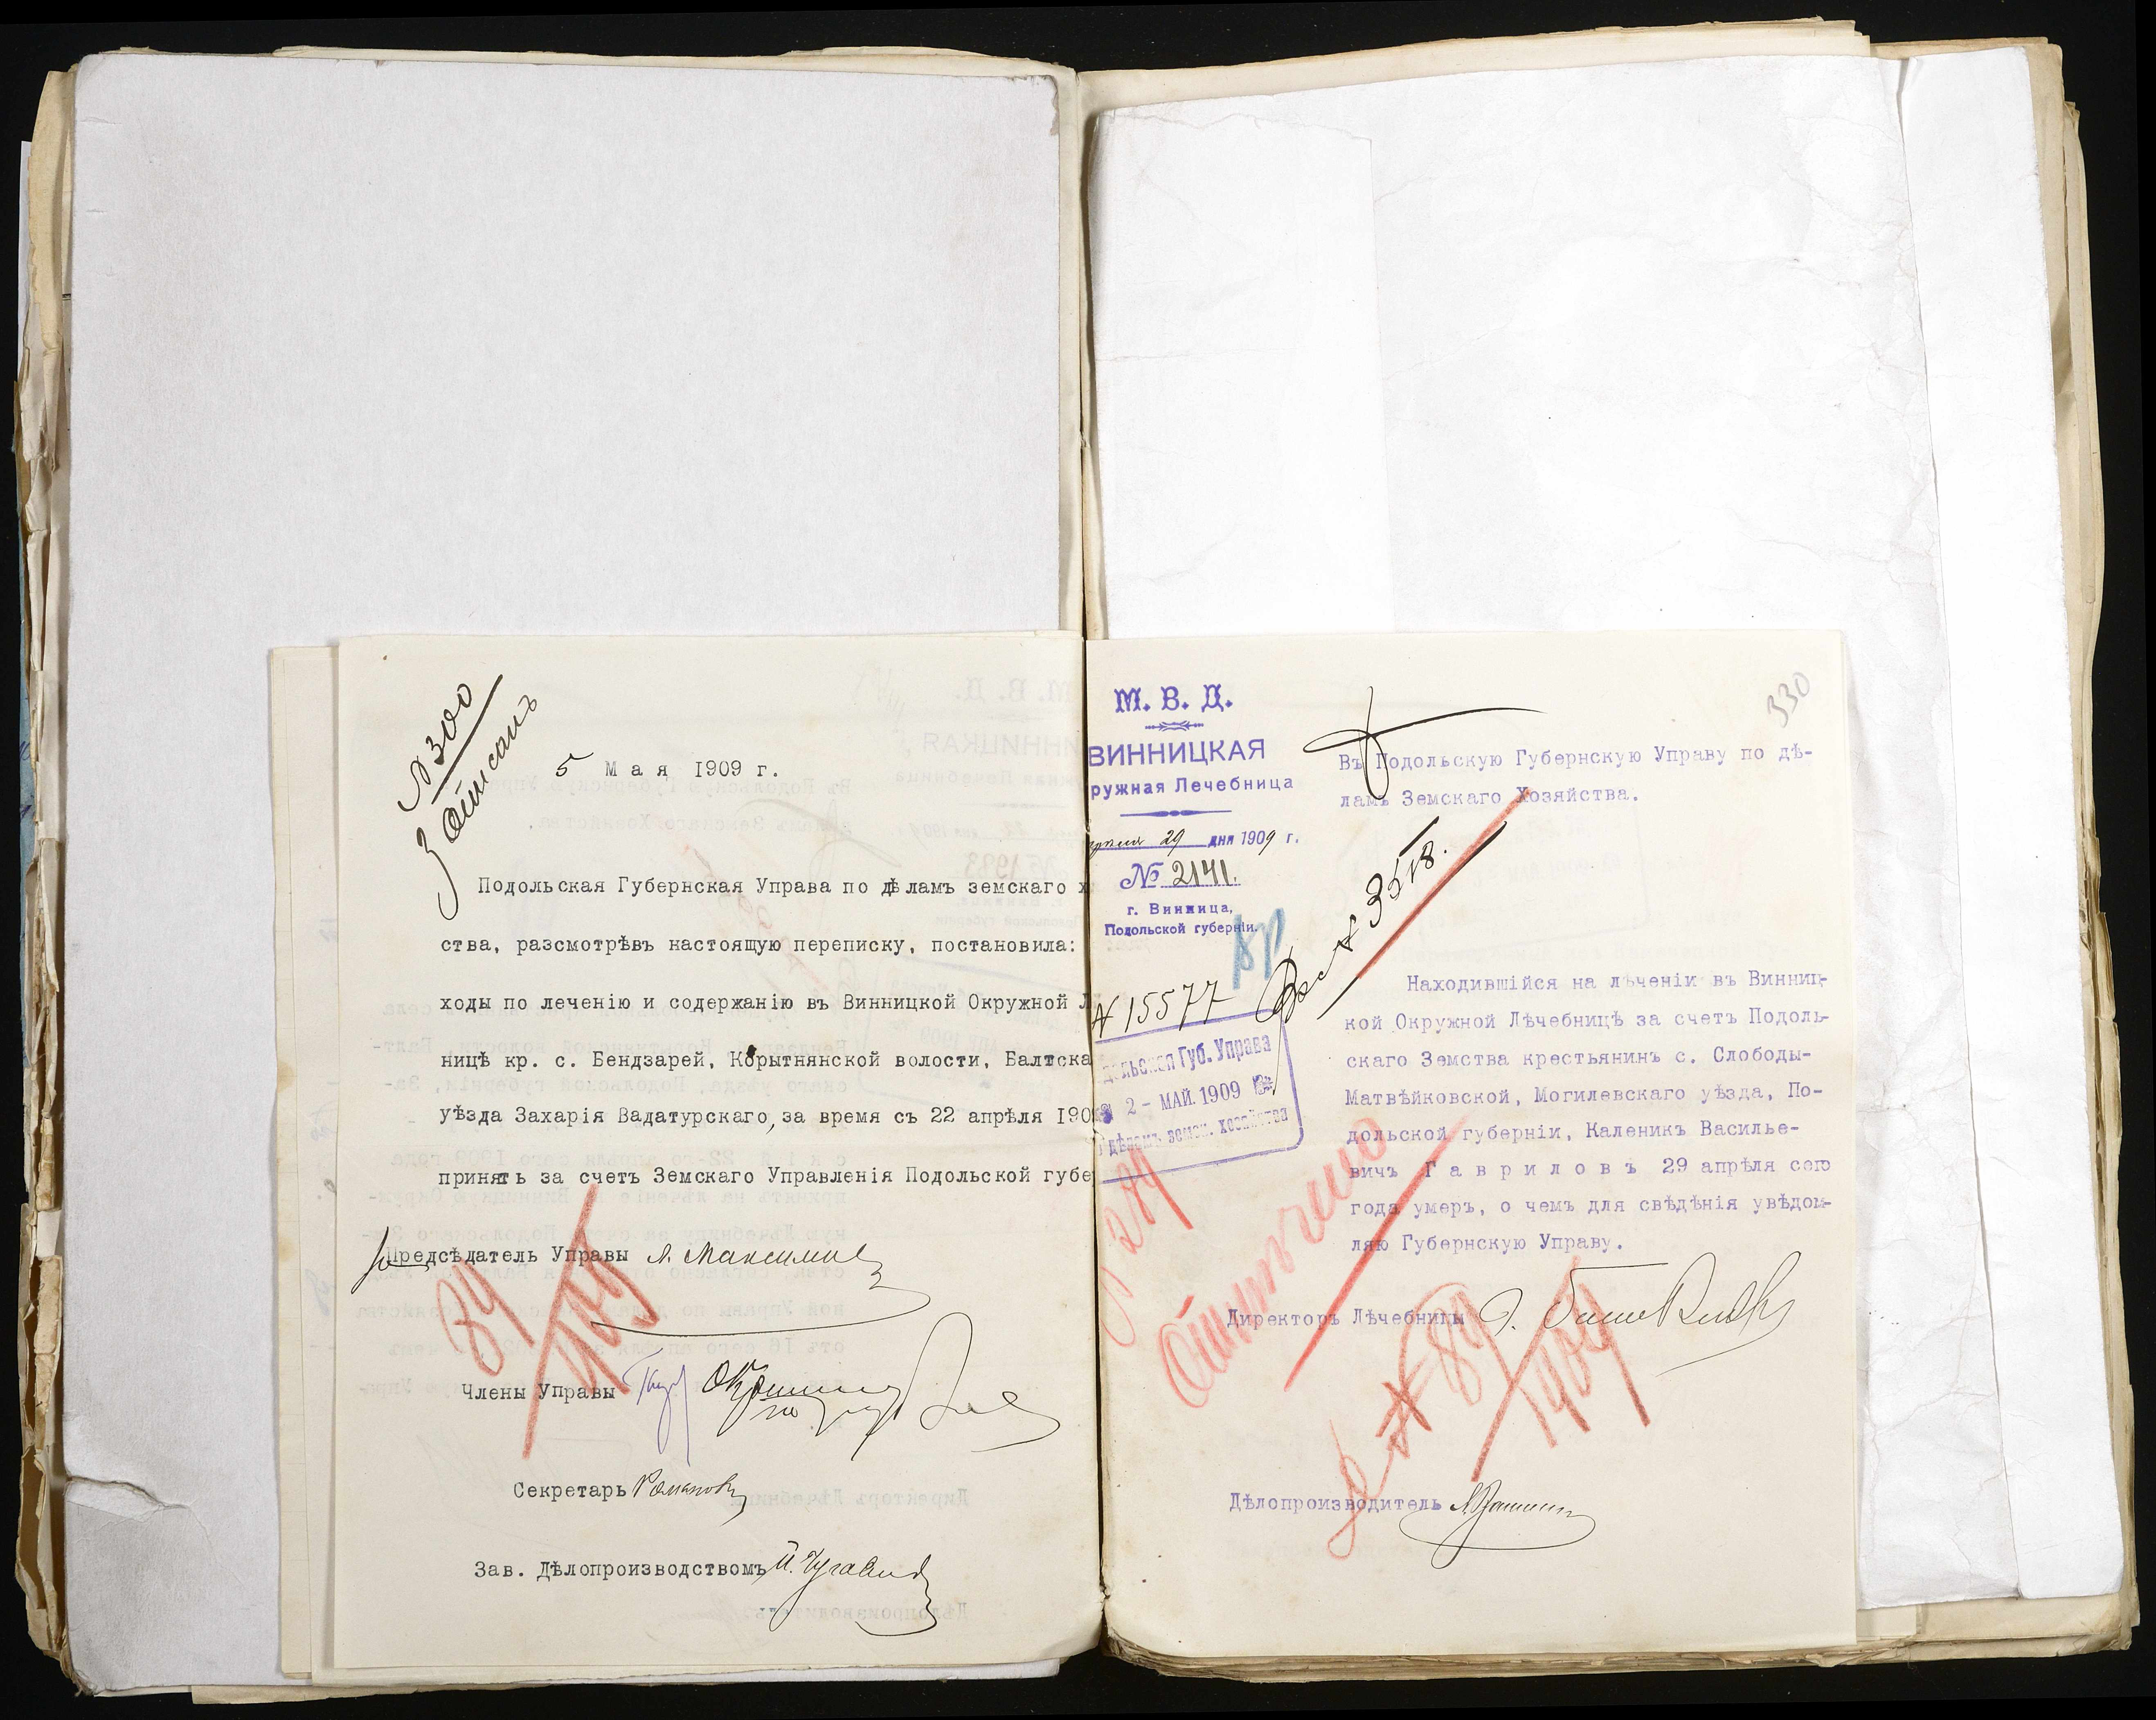 № 300
5 Мая 1909 г.
Подольская Губернская Управа по дѣламъ земскаго х
ства, разсмотрѣвъ настоящую переписку, постановила:
ходы по леченію и содержанію въ Винницкой Окружной Л
ницѣ кр. с. Бендзарей, Корытнянской волости, Балтска
уѣзда Захарія Вадатурскаго, за время съ 22 апрѣля 190
принять за счетъ Земскаго Управленія Подольской губе
Предсѣдатель Управы
Члены Управы
Секретарь
Зав. Дѣлопроизводствомъ
330
М. В. Д.
ВИННИЦКАЯ
ружная Лечебница
29 дня 1909 г.
№ 2141.
г. Винница,
Подольской губерніи.
Въ Подольскую Губернскую Управу по дѣ-
ламъ Земскаго Хозяйства.
3518.
N 15577
дольская Губ. Управа
2 - МАЙ. 1909
дѣламъ земск. хозяйства
Находившійся на лѣченіи въ Винниц-
кой Окружной Лѣчебницѣ за счетъ Подоль-
скаго Земства крестьянинъ с. Слободы-
Матвѣйковской, Могилевскаго уѣзда, По-
дольской губерніи, Каленикъ Василье-
вичъ Гавриловъ 29 апрѣля сего
года умеръ, о чемъ для свѣдѣнія увѣдом-
ляю Губернскую Управу.
Отмѣчено
Директоръ Лѣчебницы
Дѣлопроизводитель